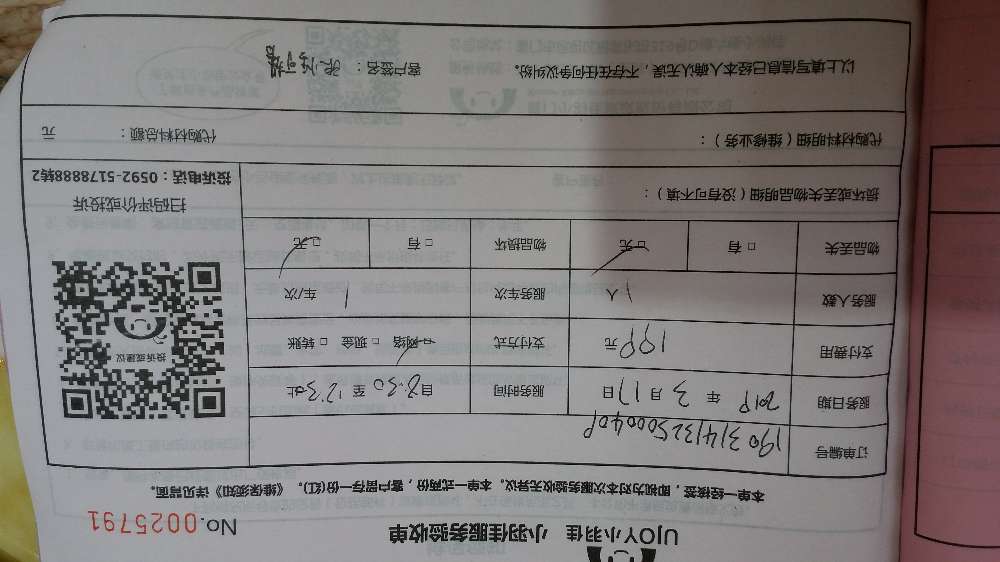 UJOY小羽佳 小羽佳服务验收单 No.0025791
本单一经接签，即视为对本次服务验收、无异议。本单一式两份，客户留存一份(红)。《维保须知》详见背面。
订单编号 190314132500040P
服务日期 2019 年 3 月 17 日 服务时间 自 8:30 至 12:30 止
支付费用 199 元 支付方式 □ 网络 □ 现金 □ 转账
服务人数 1 人 服务车次 1 车/次
物品丢失 □ 有 □ 无 物品损坏 □ 有 □ 无
损坏或丢失物品明细（没有可不填）：
代购材料明细（维修业务）： 代购材料总额： 元
以上填写信息已经本人确认无误，不存在任何争议纠纷。 客户签名：
投诉或建议
扫码评价或投诉
投诉电话：0592-5178888转2